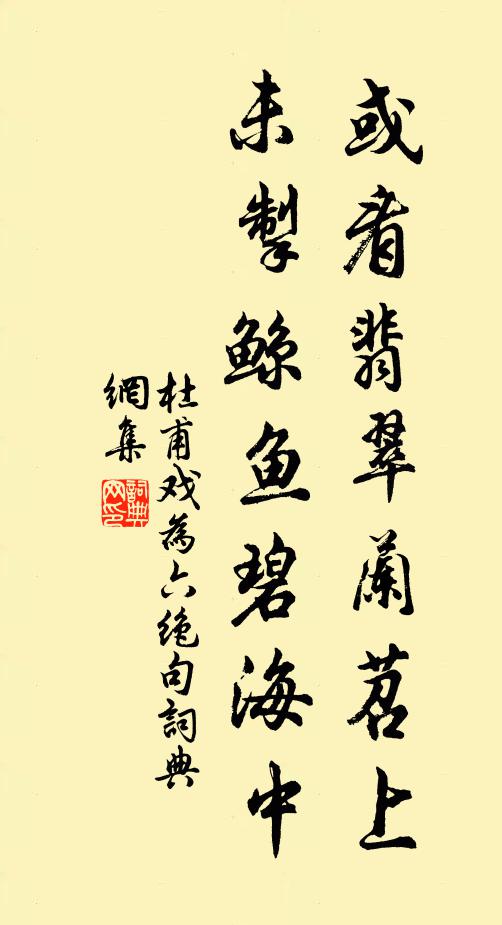 或看翡翠蘭苕上
未掣鲸鱼碧海中
杜甫戏為六绝句詞典
網集
詞典
网印